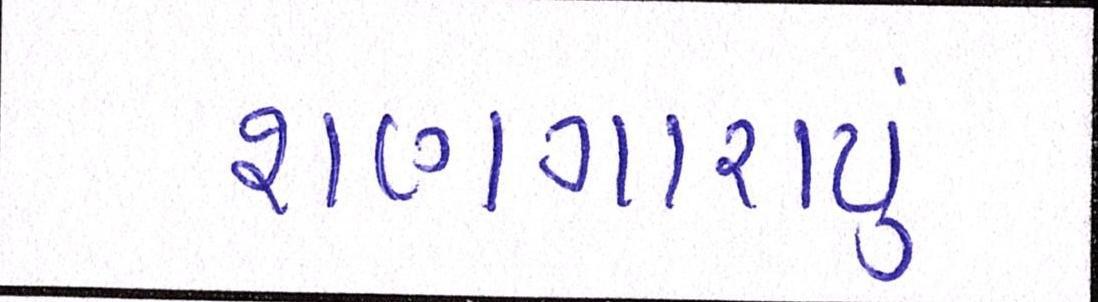 શણગારાયું